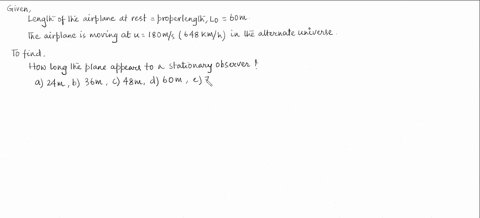 Given,
Length of the airplane at rest = proper length, L0 = 60m
The airplane is moving at u = 180m/s (648 km/h) in the alternate universe.
To find,
How long the plane appears to a stationary observer?
a) 24m, b) 36m, c) 48m, d) 60m, e)